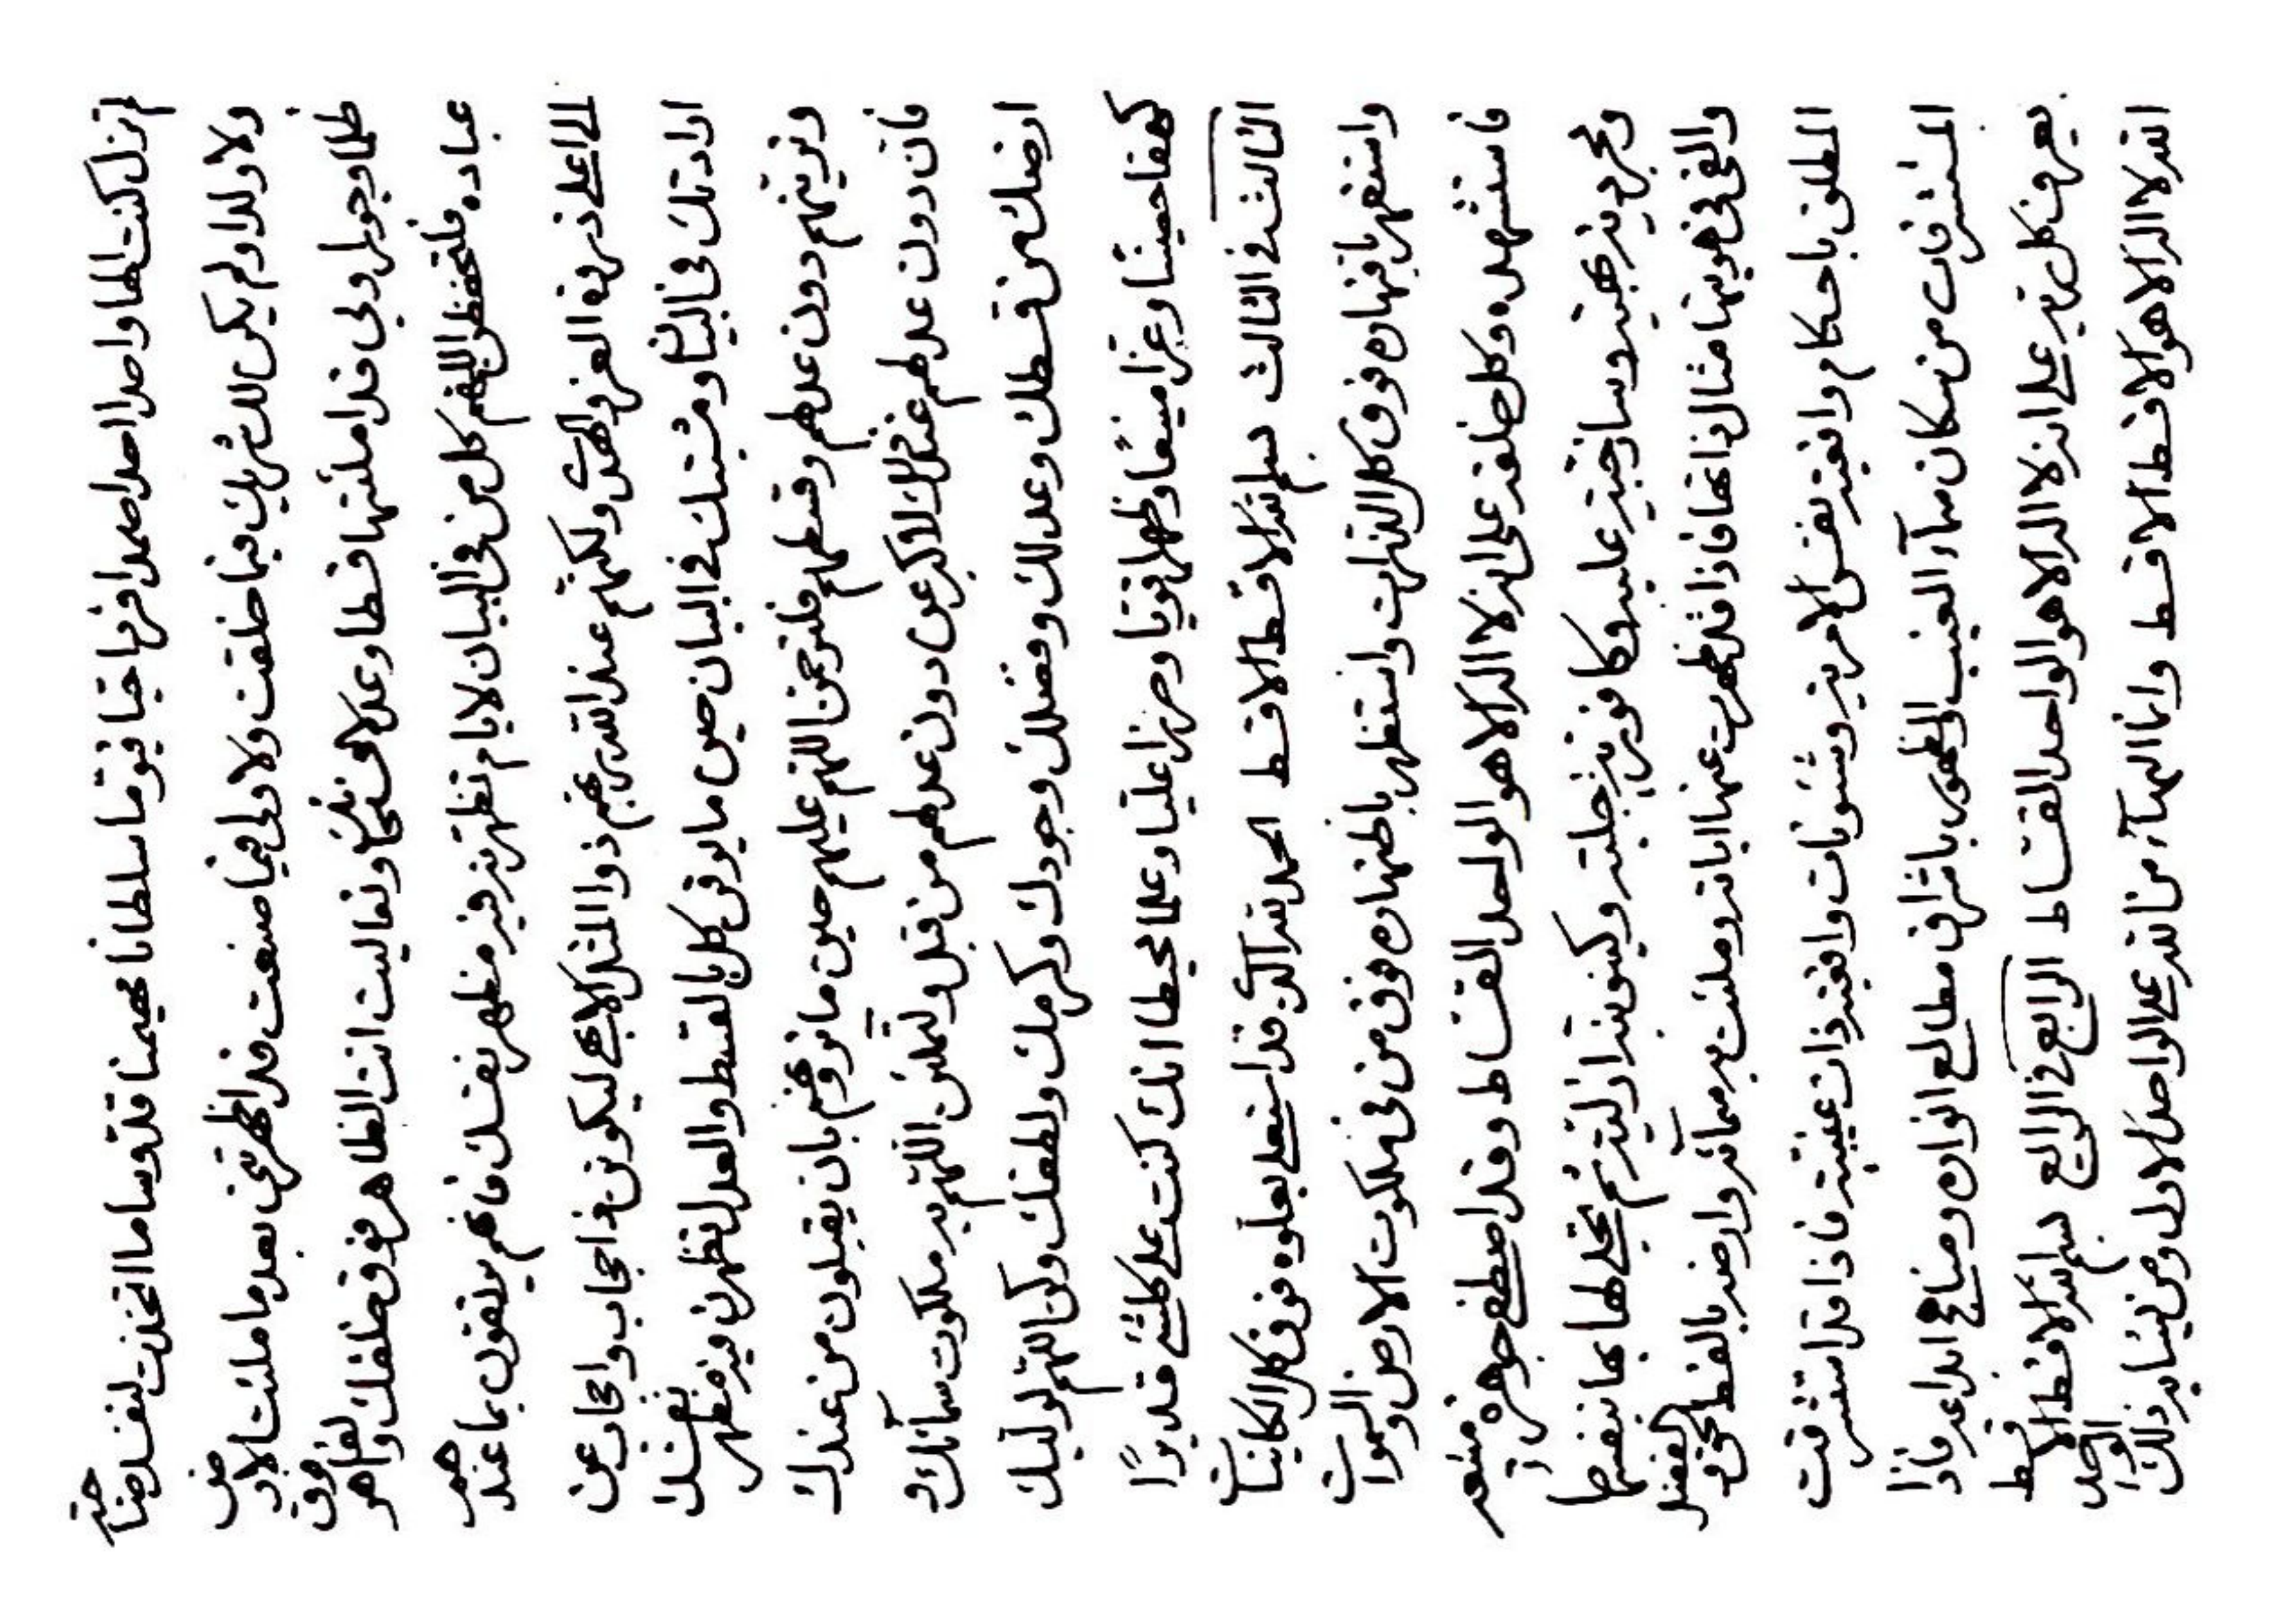 لم تزل كنت الها واحدا احدا صمدا فردا حيا قيوما سلطانا مهيمنا قدوسا ما اتخذت لنفسك صاحبة
ولا ولدا ولم يكن لك شريك فيما خلقت ولا ولي فيما صنعت قد اظهرتني بعد ما ملئت الارض
ظلما وجورا ولي قد املئتها قسطا وعدلا وتعاليت انت الظاهر فوق خلقك والقاهر فوق
عباده فلتحفظن اللهم كل من في البيان لايام تظهرن فيه مظهر نفسك فانهم بما عندهم
الى اعلى ذروة العز والهدى ولكنهم عند الله ربهم ذو المثل ليكونن في احجاب عن
ارادتك في البيان ومشيتك في البيان حين ما يوقن كل بالقسط والعدل تظهرن فيه مظهر نفسك
وترينهم دون عدلهم وقسطهم فلترحمن اللهم عليهم حين ما بان يقبلون من عندك
فان دون عدلهم عندك لاكبر عن دون عدلهم من قبل ولتملئن اللهم به ملكوت سمائك و
ارضك من قسطك وعدلك وفضلك وجودك وكرمك ولطفك وكن اللهم لوليك
كهفا حصينا وعزا منيعا وظهرا قويا وحرزا عليا وعلما محيطا انك كنت على كلشئ قديرا
الثالث في الثالث بسم الله الاقسط الاقسط الحمد لله الذي قد استعلى بعلوه فوق كل الكاينات
واستقهر باقتهاره فوق كل الذرات واستظهر باظهاره فوق من في ملكوت الارض والسموات
فاستشهده وكل خلقه على انه لا اله الا هو الواحد القساط وقد اصطفى جوهرة منيعة
ومجردية وساذجية علية وكافورية جلية وكينونية ازلية ثم تجلى لها بها بنفسها
والقى في هويتها مثال ذاتها فاذا قد ظهرت عنها اياته وملئت به سمائه وارضه بالقسط المحق و الفضل
المطلق باحكام وافقية نفس الامرية وشئونات وافقية ذات غيبية فاذا قد استشرقت
المشرقات من مكان سماء الغيب والظهور باشراق مطالع انواره ومناهج ابداعه فاذا
يعرف كل به على انه لا اله الا هو الواحد القساط الرابع في الرابع بسم الله الاقسط الاقسط
الله لا اله الا هو الاقسط الاقسط وانما البهاء من الله على الواحد الاول ومن يشابه ذلك الواحد